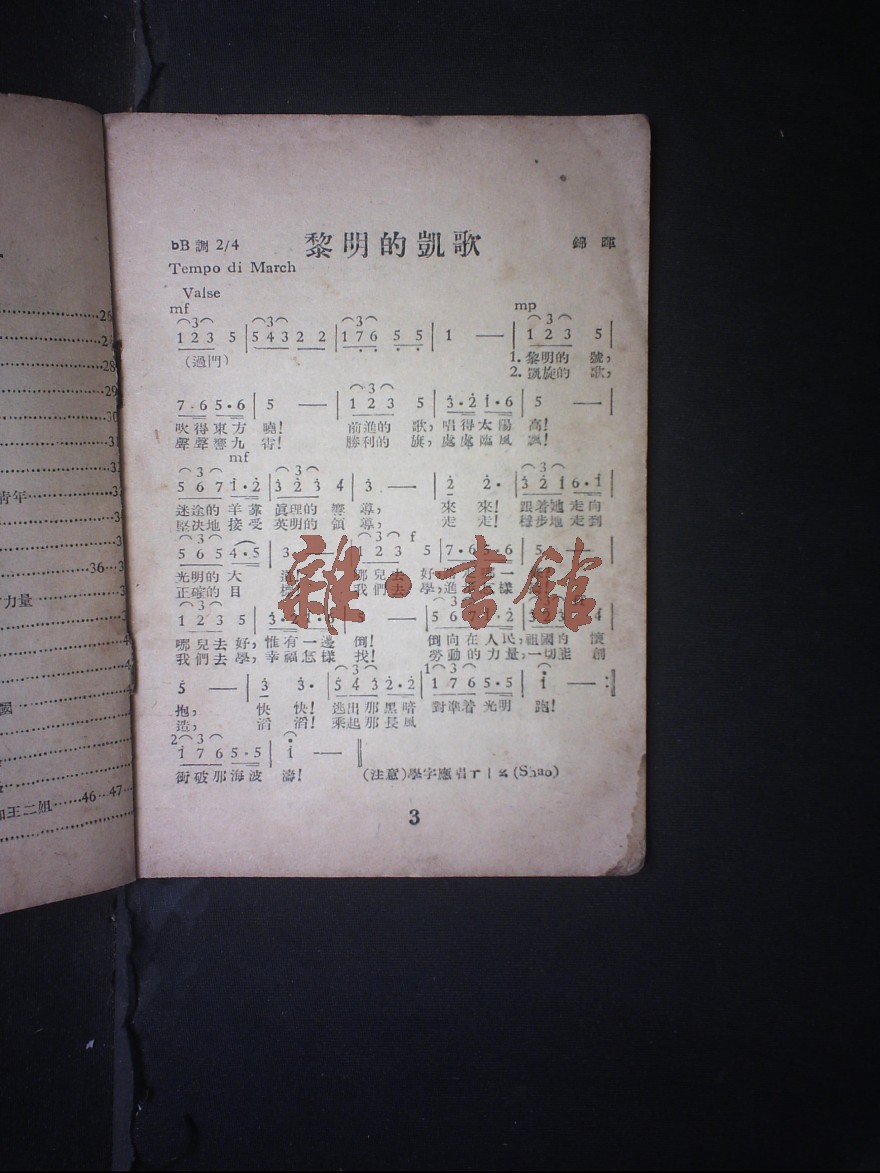 26
2
28
29
30
31
青年 32
3
3
36
力量
國
和王二姐 46 47
bB 調 2/4 黎明的凱歌 錦暉
Tempo di March
Valse
mf mp
3 3 3 3
1 2 3 5 | 5 4 3 2 2 | 1 7 6 5 5 | 1 — | 1 2 3 5 |
(過門) 1. 黎明的 號,
2. 凱旋的 歌,
3
7·6 5·6 | 5 — | 1 2 3 5 | 3·2 1·6 | 5 — |
吹得東方 曉! 前進的 歌,唱得太陽 高!
聲聲響九 霄! 勝利的 旗,處處臨風 飄!
mf
3 3 3
5 6 7 1·2 | 3 2 3 4 | 3 — | 2 2· | 3 2 1 6·1 |
迷途的羊羣 眞理的 嚮 導, 來 來! 跟着她走向
堅決地接受 英明的 領 導, 走 走! 穩步地走到
3 3 f
5 6 5 4·5 | 3 — | 1 2 3 5 | 7·6 5·6 | 5 — |
光明的大 哪兒去 好,
正確的目 我們去 學,進 樣
3 3 3
1 2 3 5 | 3·2 5 6 7 2 4
哪兒去 好,惟有一邊 倒! 倒向在人民,祖國的 懷
我們去 學,幸福怎樣 找! 勞動的力量,一切能 創
3 1 3
5 — | 3 3· | 5 4 3 2·2 | 1 7 6 5·5 | 1 — :‖
抱, 快 快! 逃出那黑暗 對準着光明 跑!
造, 滔 滔! 乘起那長風
2 3
1 7 6 5·5 | 1 — ‖
衝破那海波 濤! (注意)學字應唱ㄒㄧㄠ(Shao)
3
雜·書館